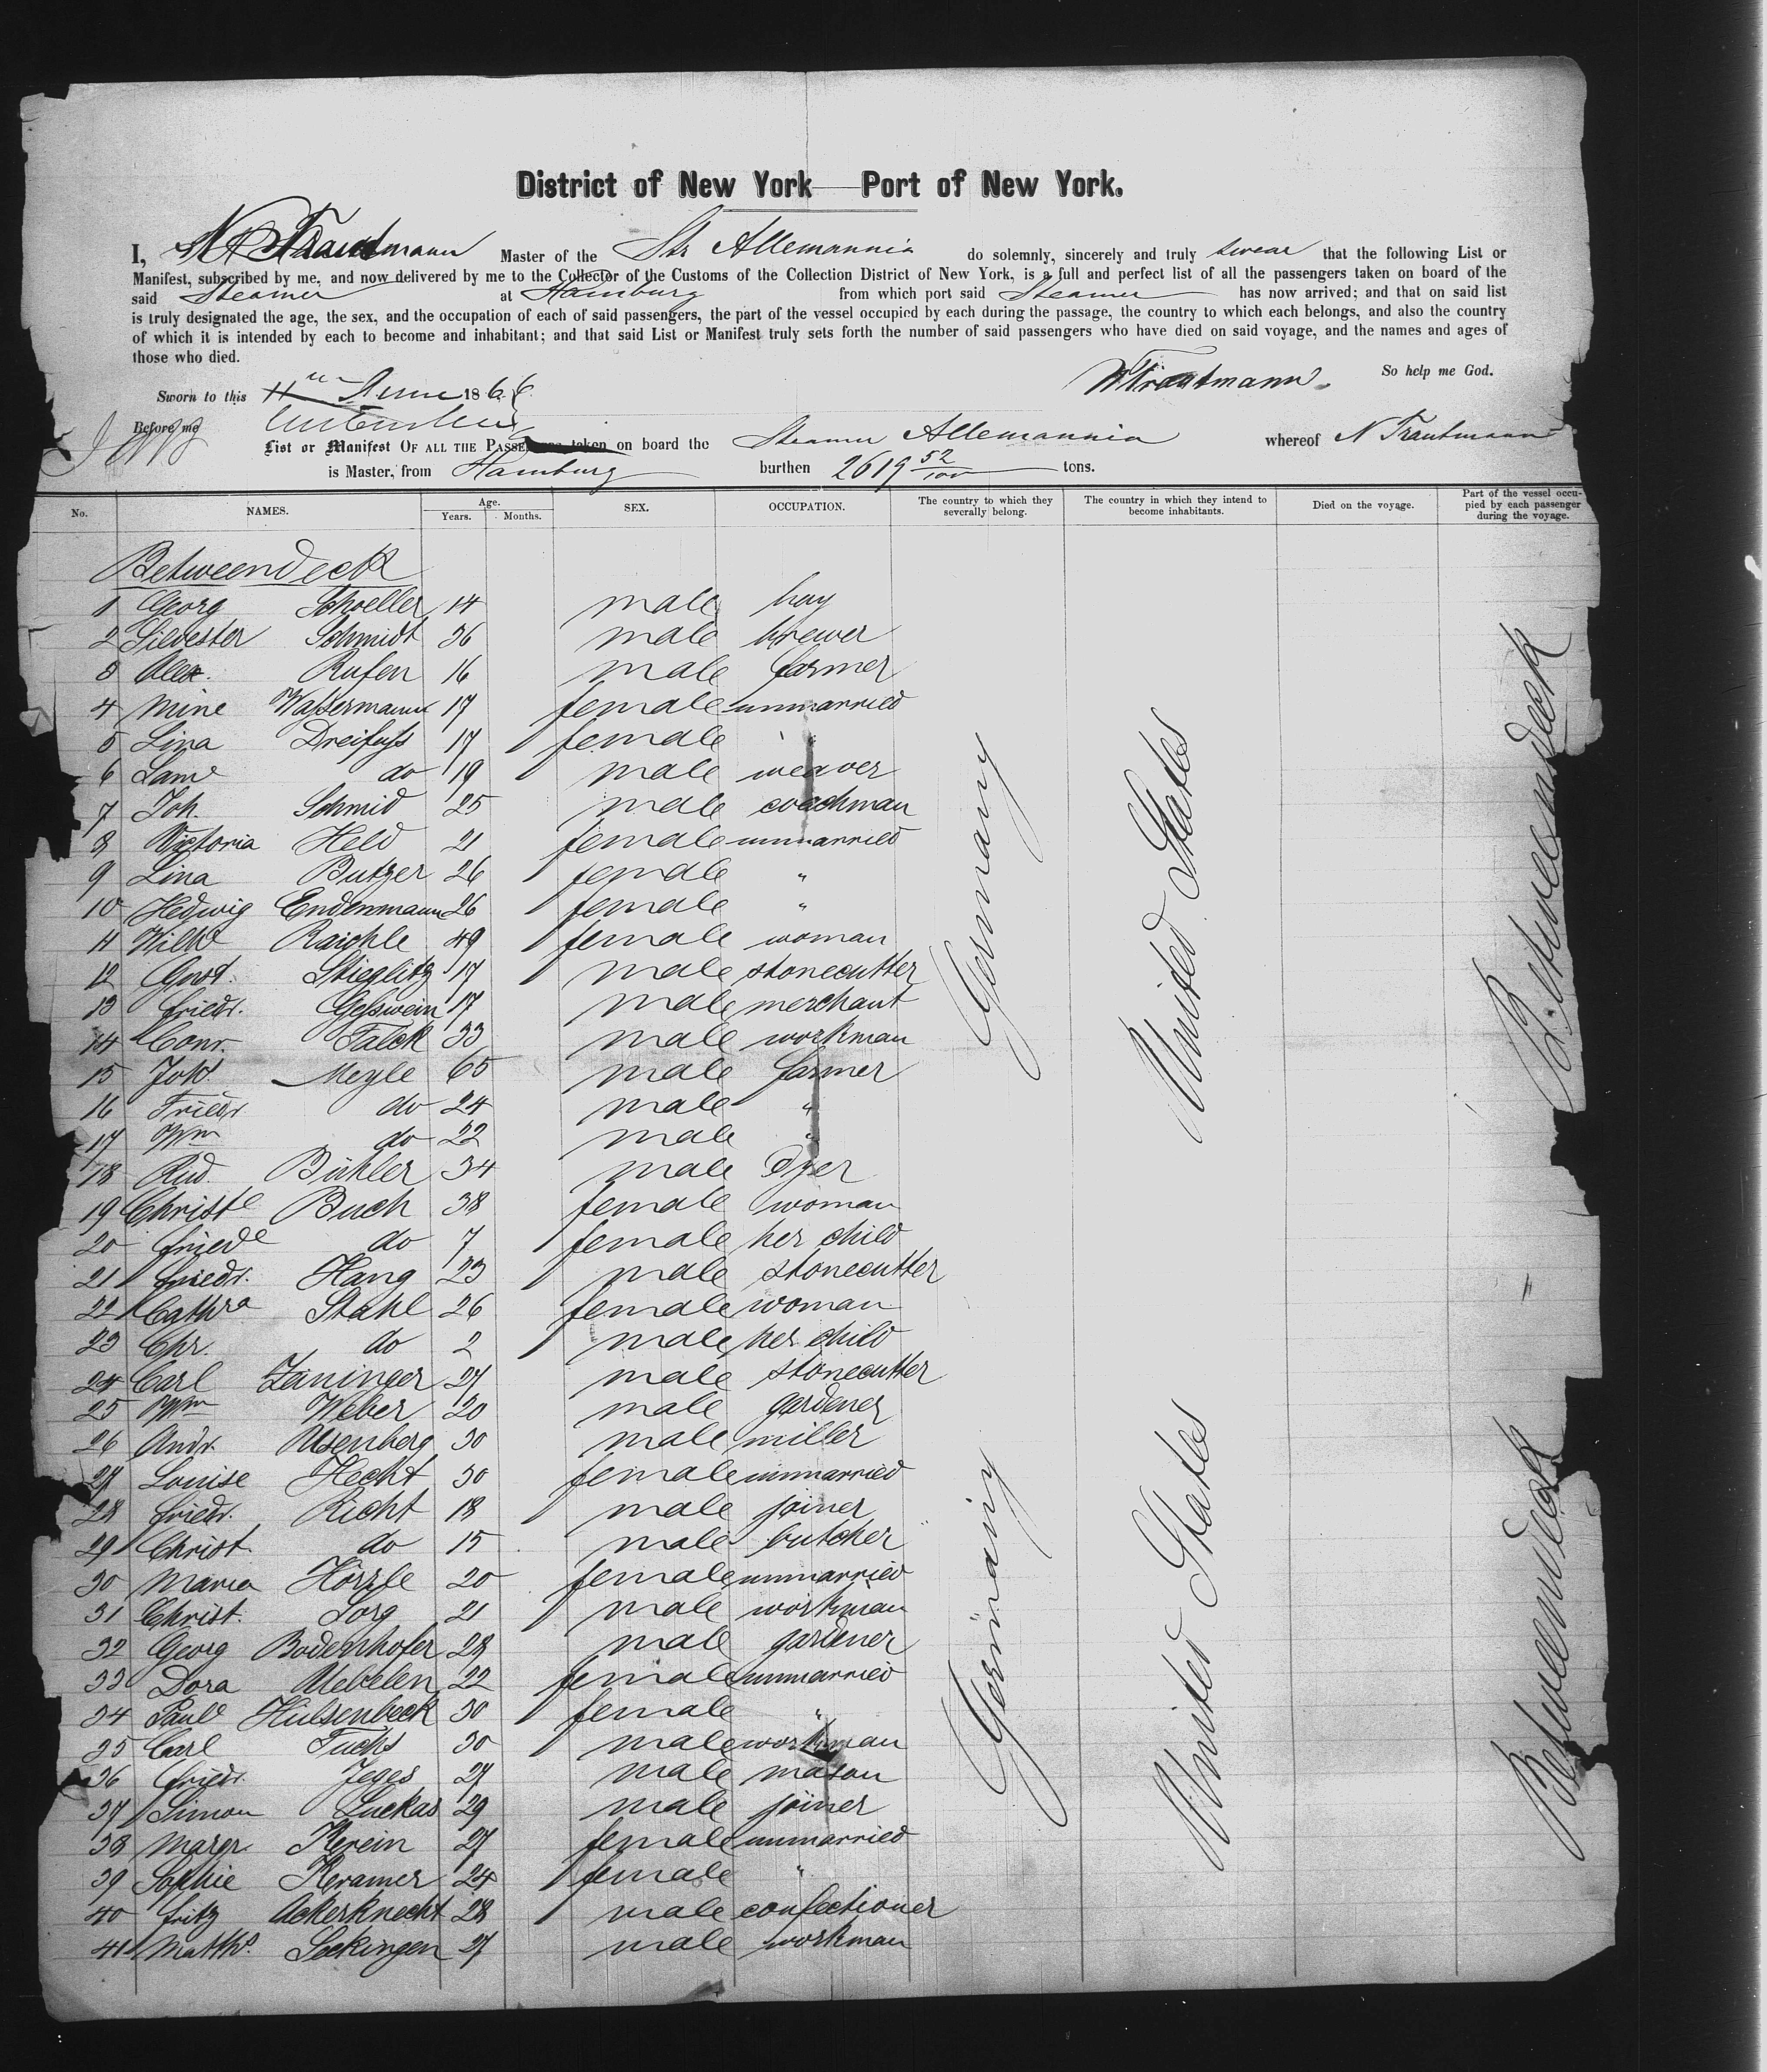 District of New York Port of New York.
I, N Trautmann Master of the Str Allemannia do solemnly, sincerely and truly swear that the following List or
Manifest, subscribed by me, and now delivered by me to the Collector of the Customs of the Collection District of New York, is a full and perfect list of all the passengers taken on board of the
said Steamer at Hamburg from which port said Steamer has now arrived; and that on said list
is truly designated the age, the sex, and the occupation of each of said passengers, the part of the vessel occupied by each during the passage, the country to which each belongs, and also the country
of which it is intended by each to become and inhabitant; and that said List or Manifest truly sets forth the number of said passengers who have died on said voyage, and the names and ages of
those who died.
NTrautmann. So help me God.
Sworn to this 11 June 1866
Before me
List or Manifest OF ALL THE PASSENGERS taken on board the Steamer Allemannia whereof N Trautmann
is Master, from Hamburg burthen 2619 52/100 tons.
No. NAMES. Age. Years. Months. SEX. OCCUPATION. The country to which they severally belong. The country in which they intend to become inhabitants. Died on the voyage. Part of the vessel occupied by each passenger during the voyage.
Betweendeck
1 Georg Schoeller 14 male boy
2 Silvester Schmidt 36 male brewer
3 Alex. Rufen 16 male farmer
4 Mine Waßermann 17 female unmarried
5 Lina Dreifuß 17 female "
6 Saml do 19 male weaver
7 Joh. Schmid 25 male coachman
8 Victoria Held 21 female unmarried
9 Lina Butzer 26 female "
10 Hedwig Endenmann 26 female "
11 Wilhe Raichle 49 female woman
12 Gust. Stieglitz 17 male stonecutter
13 Friedr. Geßwein 17 male merchant
14 Conr. Falck 33 male workman
15 Joh. Meyle 65 male farmer
16 Friedr. do 24 male "
17 Wm do 22 male "
18 Rud. Bühler 34 male dyer
19 Christe Buch 38 female woman
20 Friede do 7 female her child
21 Friedr. Haug 23 male stonecutter
22 Cathra Stahl 26 female woman
23 Chr. do 2 male her child
24 Carl Zaninger 27 male stonecutter
25 Wm Weber 20 male gardener
26 Andr. Usenberg 30 male miller
27 Louise Hecht 30 female unmarried
28 Friedr. Richt 18 male joiner
29 Christ. do 15 male butcher
30 Maria Hörzle 20 female unmarried
31 Christ. Sorg 21 male workman
32 Georg Bodenhofer 28 male gardener
33 Dora Uebelen 22 female unmarried
34 Paule Hülsenbeck 30 female "
35 Carl Fuchs 30 male workman
36 Friedr. Jeges 27 male mason
37 Simon Luckas 29 male joiner
38 Margr. Kerein 27 female unmarried
39 Sophie Kramer 24 female "
40 Fritz Ackerknecht 28 male confectioner
41 Matths. Seckingen 27 male workman
Germany
United States
Betweendeck
"
Germany
United States
Betweendeck